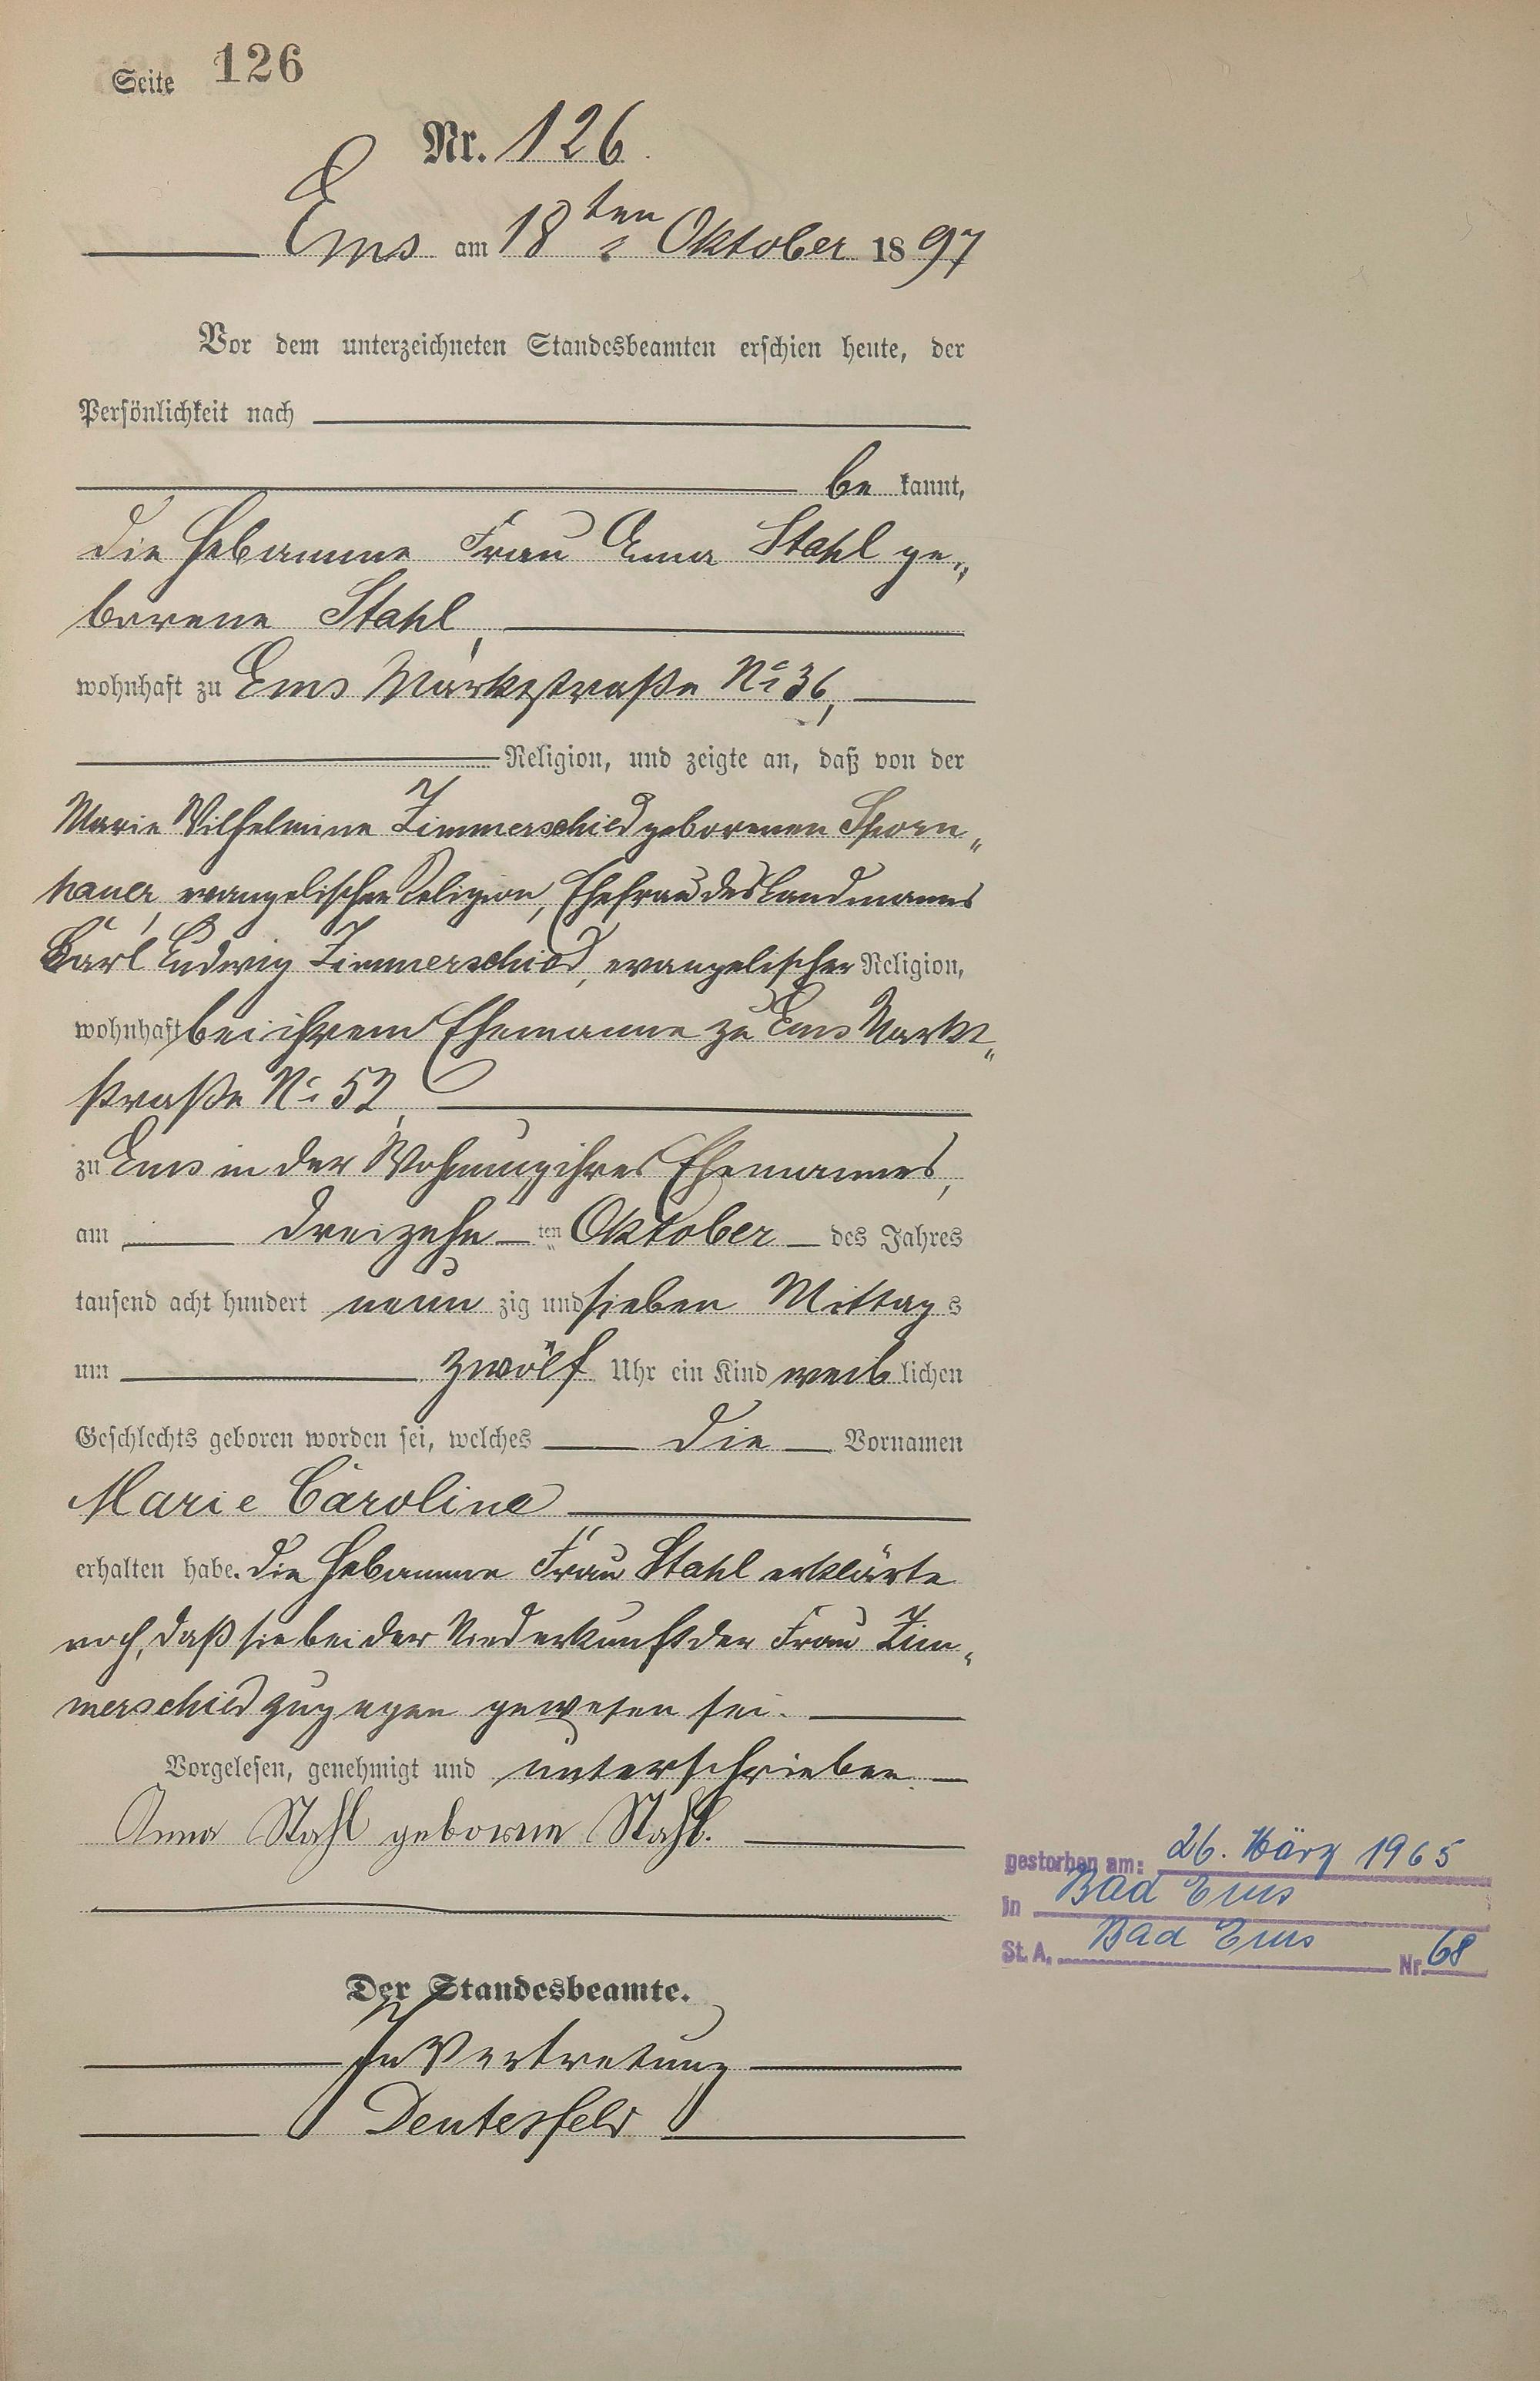 Seite 126
Nr. 126.
Ems am 18ten Oktober 1897
Vor dem unterzeichneten Standesbeamten erschien heute, der
Persönlichkeit nach
be kannt,
die Hebamme Frau Anna Stahl ge„
borene Stahl,
wohnhaft zu Ems Marktstraße No 36,
Religion, und zeigte an, daß von der
Marie Wilhelmine Zimmerschied geborenen Sporn„
hauer, evangelischer Religion, Ehefrau des Landmannes
Carl Ludwig Zimmerschied, evangelischer Religion,
wohnhaft bei ihrem Ehemanne zu Ems Markt„
straße No 52,
zu Ems in der Wohnung ihres Ehemannes,
am dreizehn ten Oktober des Jahres
tausend acht hundert neun zig und sieben Mittag s
um zwölf Uhr ein Kind weib lichen
Geschlechts geboren worden sei, welches die Vornamen
Marie Caroline
erhalten habe. Die Hebamme Frau Stahl erklärte
noch, daß sie bei der Niederkunft der Frau Zim„
merschied zugegen gewesen sei.
Vorgelesen, genehmigt und unterschrieben.
Anna Stahl geborene Stahl.
gestorben am: 26. März 1965
in Bad Ems
St. A. Bad Ems Nr. 68
Der Standesbeamte.
In Vertretung
Deutesfeld